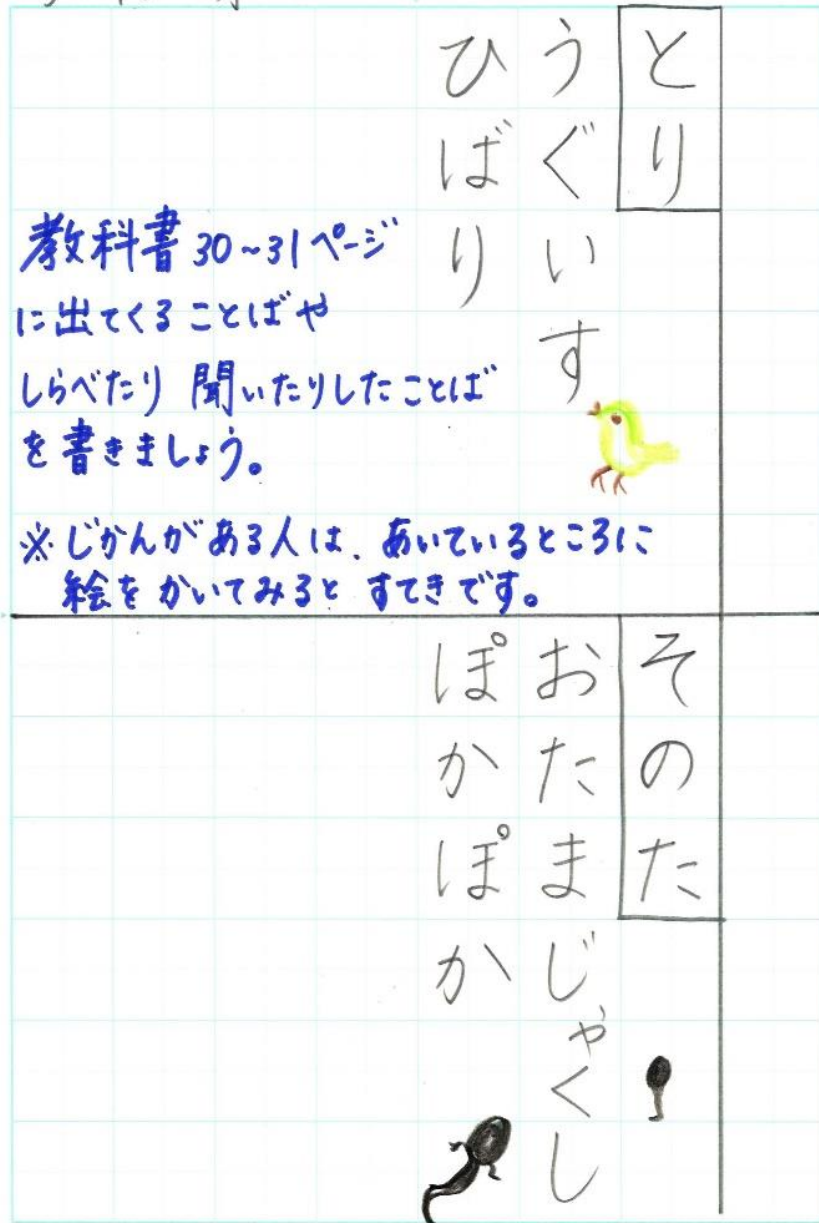 とり
うぐいす
ひばり
教科書30~31ページ
に出てくることばや
しらべたり 聞いたりしたことば
を書きましょう。
※じかんがある人は、あいているところに
絵をかいてみると すてきです。
そのた
おたまじゃくし
ぽかぽか